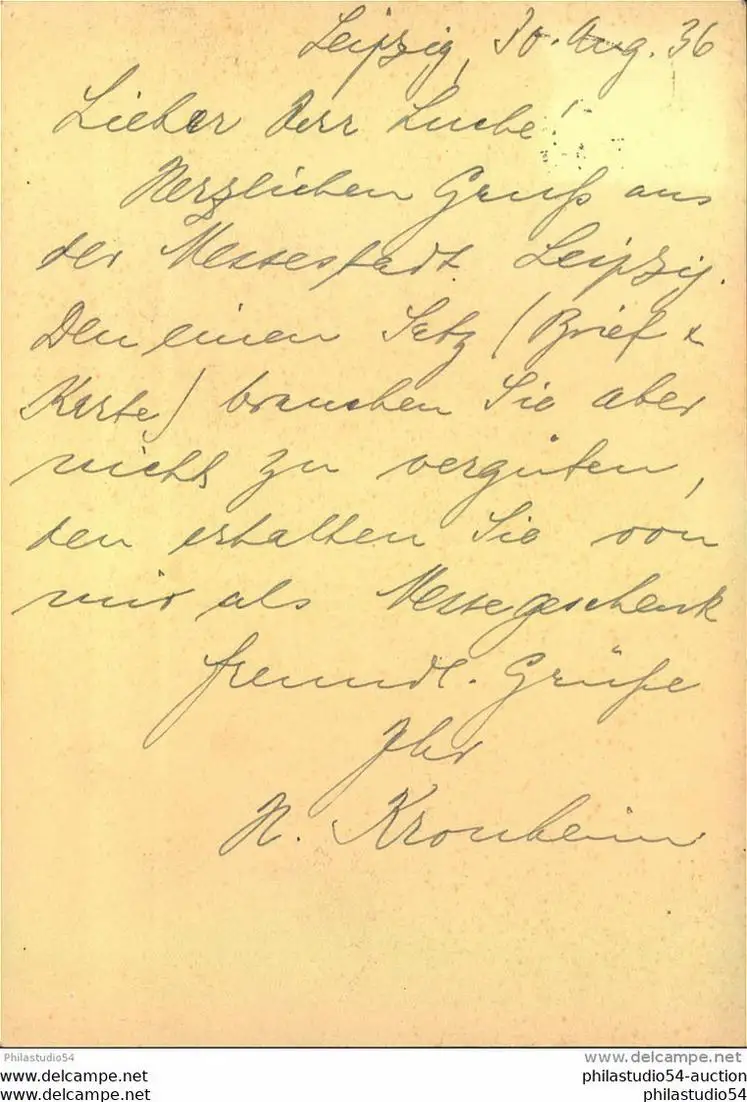 Leipzig, 30. Aug. 36
Lieber Herr Luche!
Herzlichen Gruß aus
der Messestadt Leipzig.
Den einen Satz (Brief &
Karte) brauchen Sie aber
nicht zu vergüten,
den erhalten Sie von
mir als Messegeschenk
freundl. Grüße
Ihr
H. Kronheim
Philastudio54
www.delcampe.net
www.delcampe.net
philastudio54-auction
www.delcampe.net
philastudio54